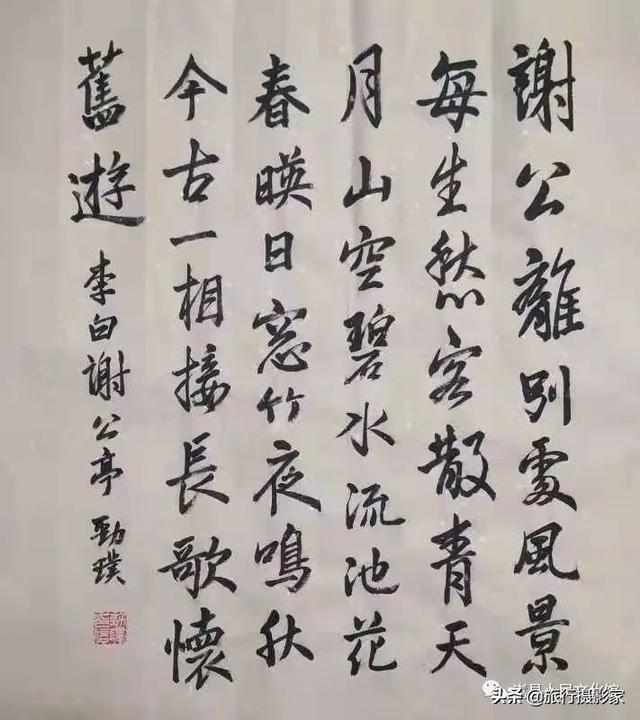 謝公離別處風景
每生愁客散青天
月山空碧水流池花
春暎日窓竹夜鳴秋
今古一相接長歌懷
舊遊 李白謝公亭 勁璞
头条@旅行摄影家